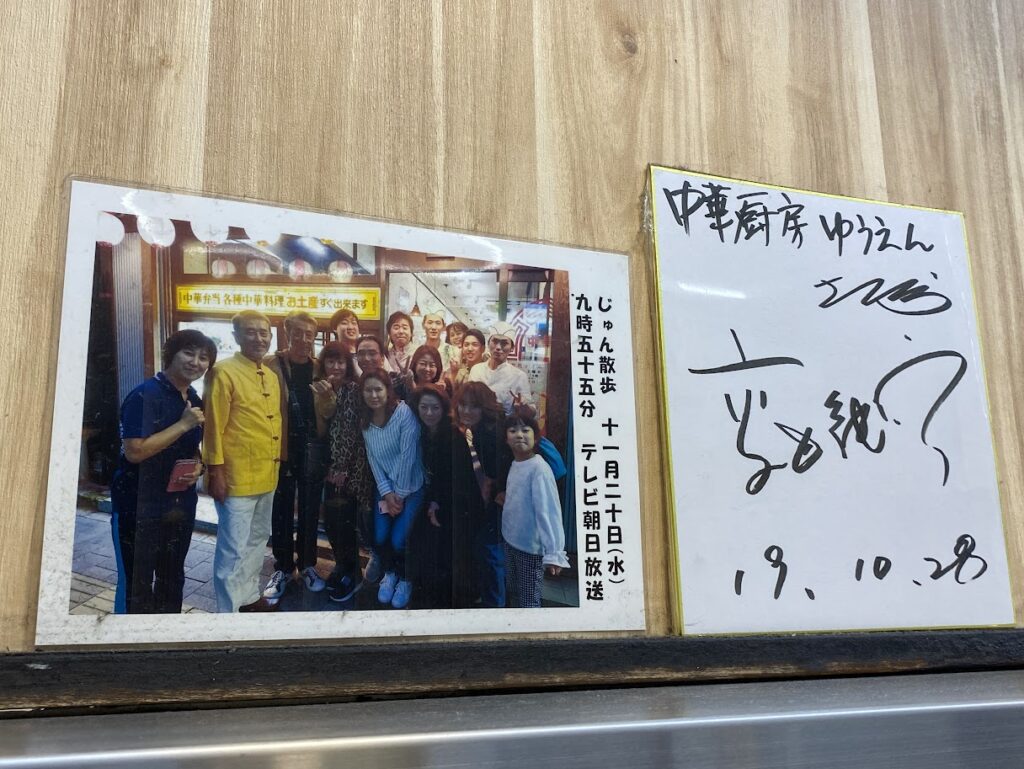 中華弁当 各種中華料理 お土産すぐ出来ます
じゅん散歩 十一月二十日(水)
九時五十五分 テレビ朝日放送
中華厨房 ゆうえん
さん江
19.10.28